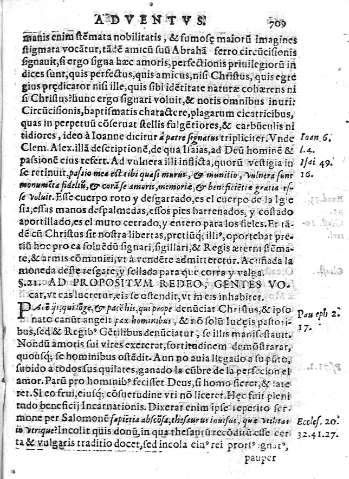 ADVENTVS. 709
manis enim stẽmata nobilitatis, & fumosę maiorũ imagines
stigmata vocãtur, tãdẽ amicũ suũ Abrahã ferro circũcisionis
signauit, si ergo signa hæc amoris, perfectionis priuilegiorũ in
dices sunt, quis perfectus, quis amicus, nisi Christus, quis egre
gius prędicator nisi ille, quis sibi idẽtitate naturæ cohærens ni
si Christus? hunc ergo signari voluit, & notis omnibus inuri:
Circũcisionis, baptismatis charactere, plagarum cicatricibus,
quas in perpetuũ cõseruat stellis fulgẽtiores, & carbũculis ni
tidiores, ideo à Ioanne dicitur à patre signatus tripliciter. Vnde
Clem. Alex. illã descriptionẽ, de qua Isaias, ad Deũ hominẽ &
passionẽ eius refert. Ad vulnera illi inflicta, quorũ vestigia in
se retinuit, passio mea est tibi quasi murus, & munitio, vulnera sunt
monumẽta fideliũ, & corã se amoris, memoriæ, & beneficẽtiæ gratia esse
se voluit. Esse cuerpo roto y desgarrado, es el cuerpo de la Igle
sia, essas manos despalmadas, essos pies barrenados, y costado
aportillado, es el muro cerrado, y entero para los fieles. Et tã
dẽ cũ Christus sit nostra libertas, pretiũq; illiꝰ, oportebat pre
tiũ hoc pro ea soluẽdũ signari, sigillari, & Regis æterni stẽma
te, & armis cõmuniri, vt à vendẽte admitterctur. Acuñada la
moneda desse resgate, y sellada para que corra y valga.
§. 21. AD PROPOSITVM REDEO, GENTES VO-
cat, vt eas lucretur, eis se ostendit, vt in eis inhabitet.
Pacẽ ijs, qui lõge, & pacẽ his, qui prope denũciat Christus, & ipso
nato canũt angeli pax hominibus, & nõ solũ Iudęis pastori-
bus, sed & Regibꝰ Gẽtilibus denũciatur, se illis manifestauit.
Nondũ amoris sui vires exercet, fortitudinem demõstrarat,
quousq; se hominibus ostẽdit. Aun no auia llegado a su pũto,
subido a todos sus quilates, ganado la cũbre de la perfeccion el
amor. Parũ pro hominibꝰ fecisset Deus, si homo fieret, & late
ret. Si eo frui, eiusq; cõsuetudine vti nõ liceret. Hęc fuit pleni
tudo beneficij Incarnationis. Dixerat enim ipse repetito ser-
mone per Salomonẽ sapiẽtia abscõsa, thesaurus inuisus, quæ vtilitas
in vtrisque? Incolit quis donũ, in qua thesaurũ recõditũ esse cer
ta & vulgaris traditio docet, sed incola eiꝰ rei prorsꝰ ignarꝰ,
pauper
Ioan 6.
Isai 49.
16.
Paul. eph 2.
17.
Eccles. 20.
32. 41. 27.